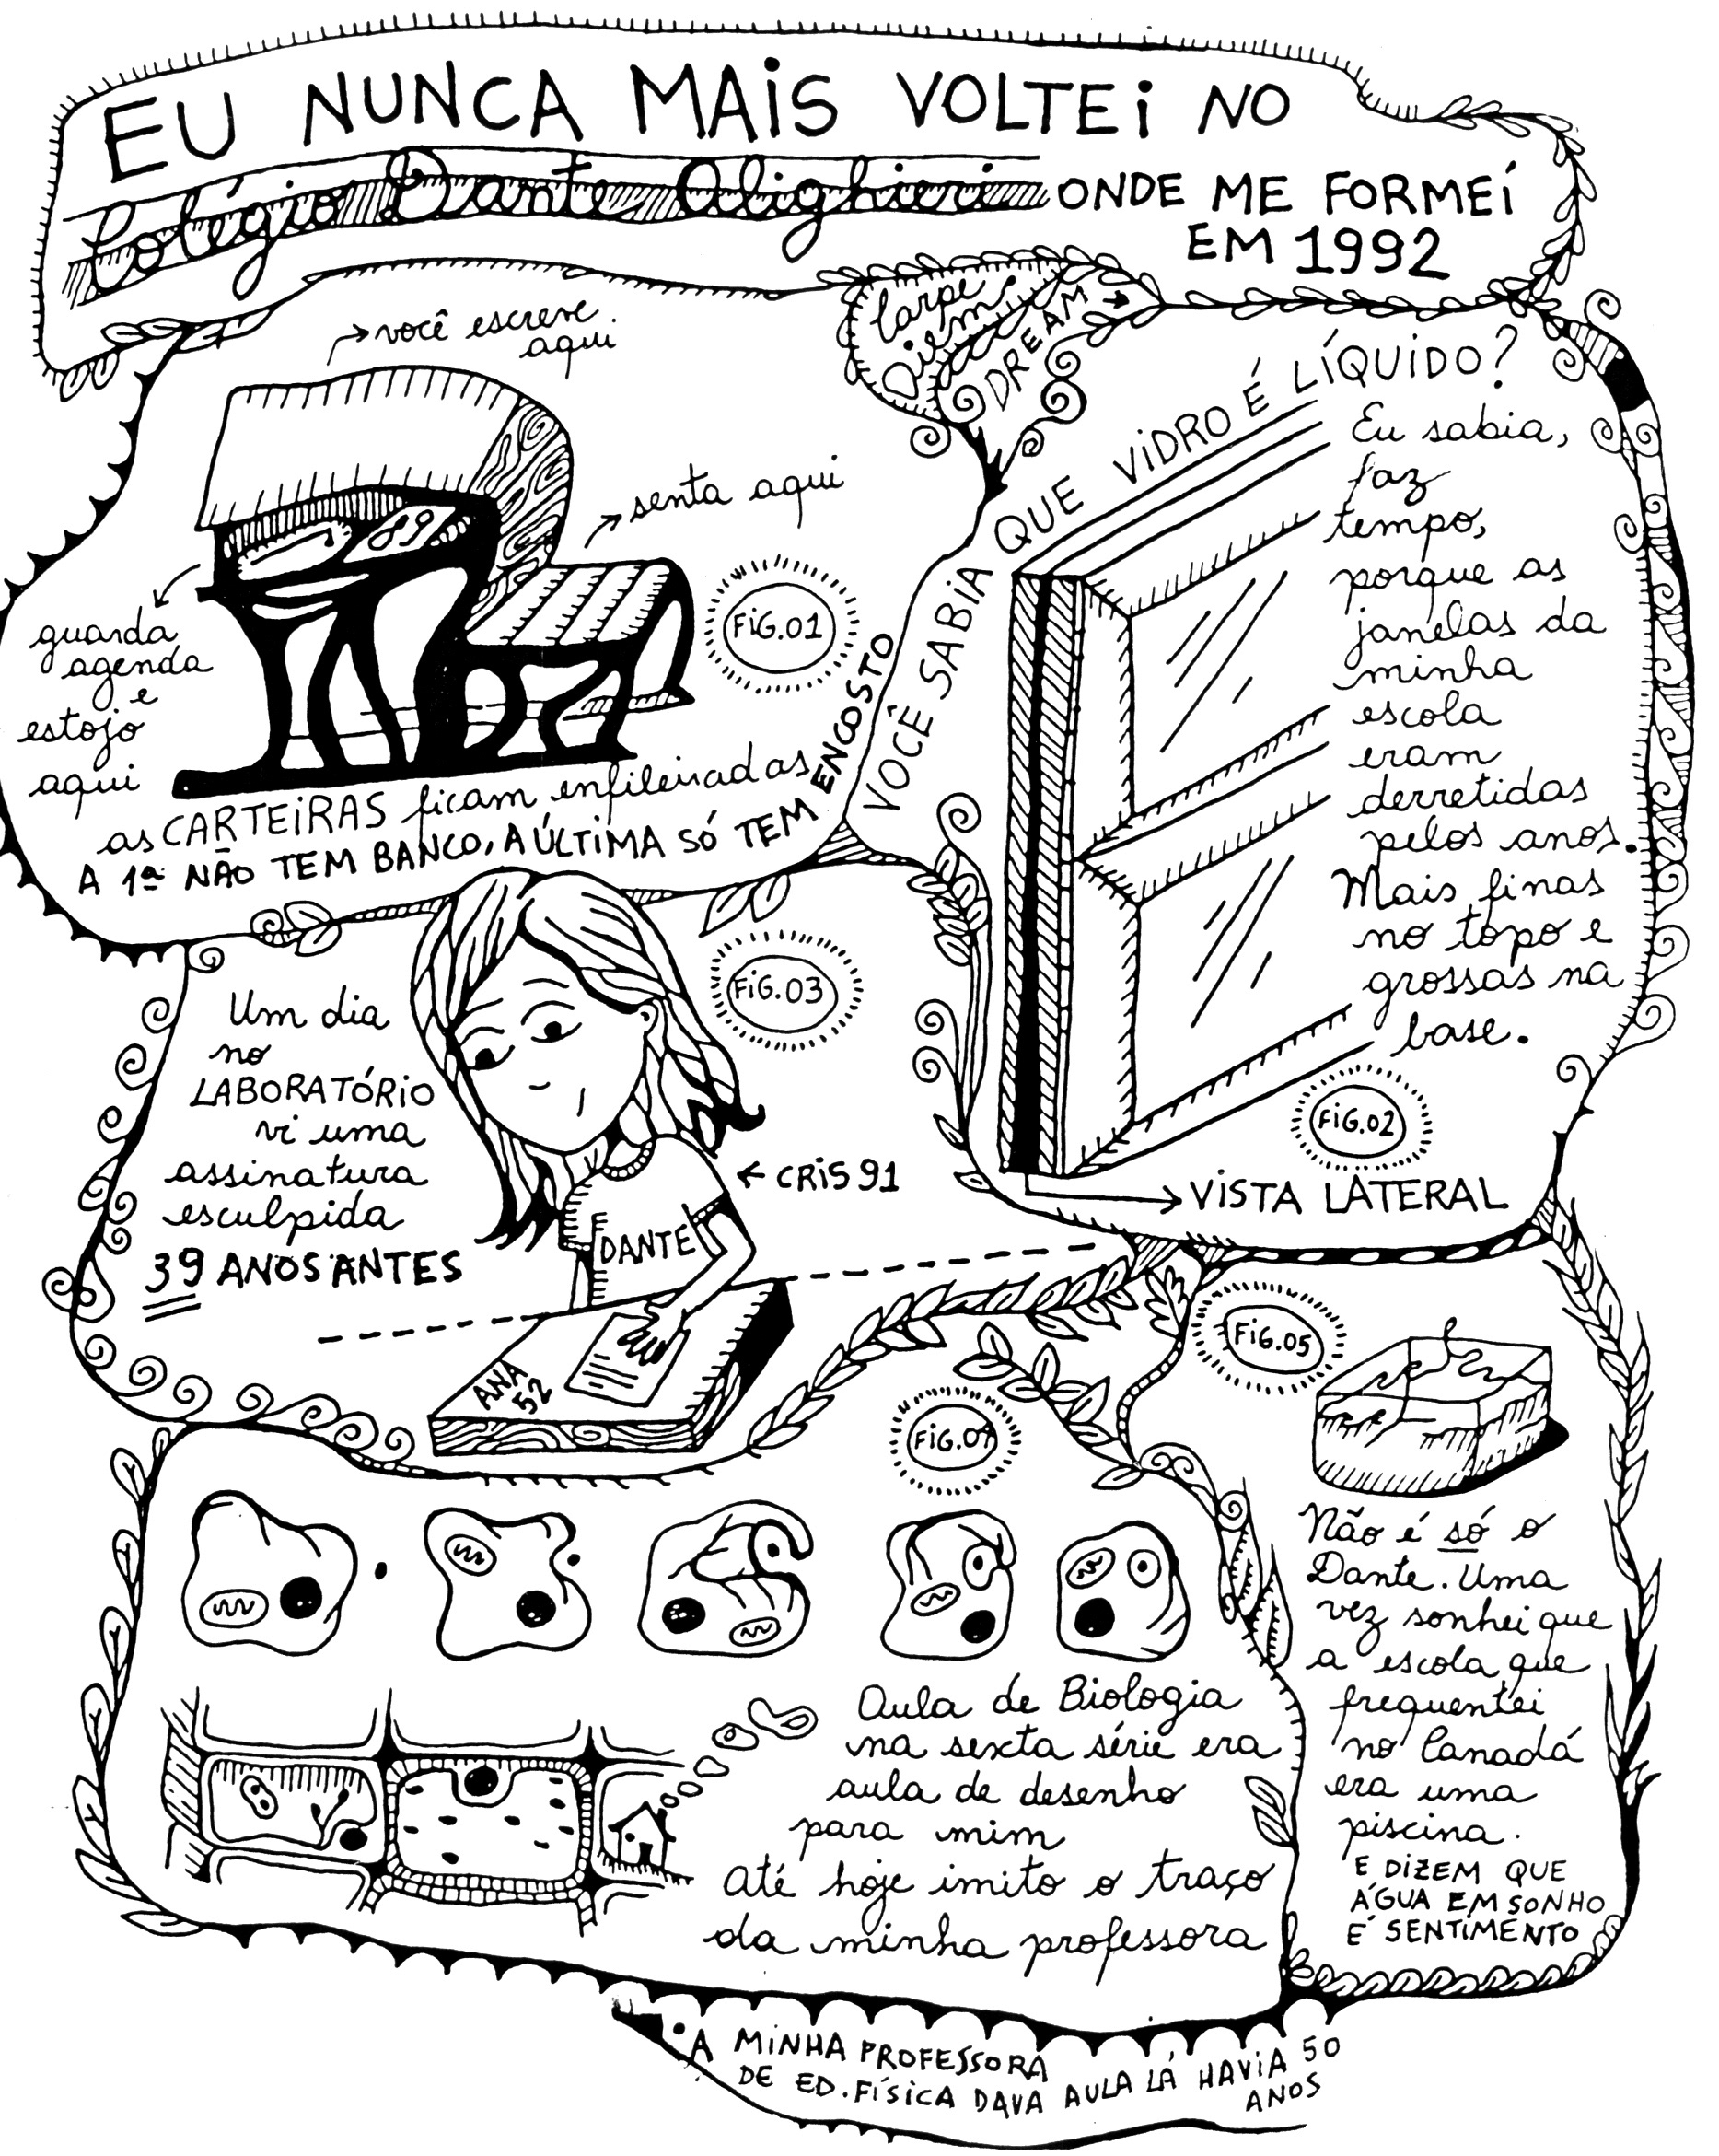 EU NUNCA MAIS VOLTEI NO
Colégio Dante Alighieri ONDE ME FORMEI
EM 1992
Carpe
Diem
DREAM
você escreve
aqui
senta aqui
guarda
agenda
e
estojo
aqui
89
FIG.01
as CARTEIRAS ficam enfileiradas
A 1ª NÃO TEM BANCO, A ÚLTIMA SÓ TEM ENCOSTO
VOCÊ SABIA QUE VIDRO É LÍQUIDO?
Eu sabia,
faz
tempo,
porque as
janelas da
minha
escola
eram
derretidas
pelos anos.
Mais finas
no topo e
grossas na
base.
FIG.02
VISTA LATERAL
FIG.03
Um dia
no
LABORATÓRIO
vi uma
assinatura
esculpida
39 ANOS ANTES
CRIS 91
DANTE
ANA
52
FIG.04
Aula de Biologia
na sexta série era
aula de desenho
para mim
Até hoje imito o traço
da minha professora
FIG.05
Não é só o
Dante. Uma
vez sonhei que
a escola que
frequentei
no Canadá
era uma
piscina.
E DIZEM QUE
ÁGUA EM SONHO
É SENTIMENTO
A MINHA PROFESSORA
DE ED. FÍSICA DAVA AULA LÁ HAVIA 50
ANOS